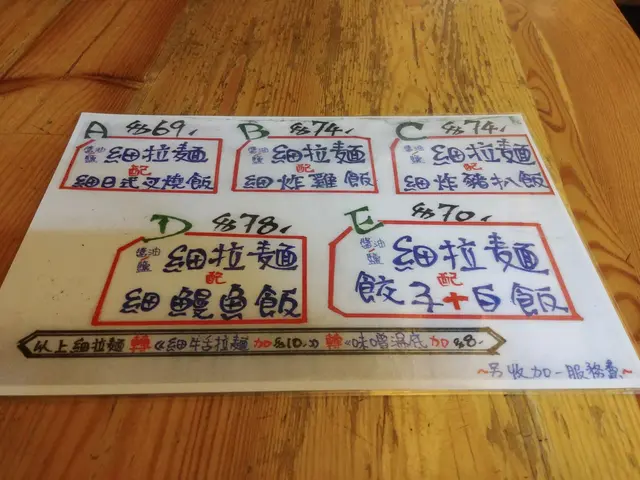 A $69.
醬油 鹽 細拉麵
配
細日式叉燒飯
B $74.
醬油 鹽 細拉麵
配
細炸雞飯
C $74.
醬油 鹽 細拉麵
配
細炸豬扒飯
D $78.
醬油 鹽 細拉麵
配
細鰻魚飯
E $70.
醬油 鹽 細拉麵
配
餃子+白飯
以上細拉麵 轉《細牛舌拉麵 加$10.》轉《味噌湯底 加$8.
~另收加一服務費~